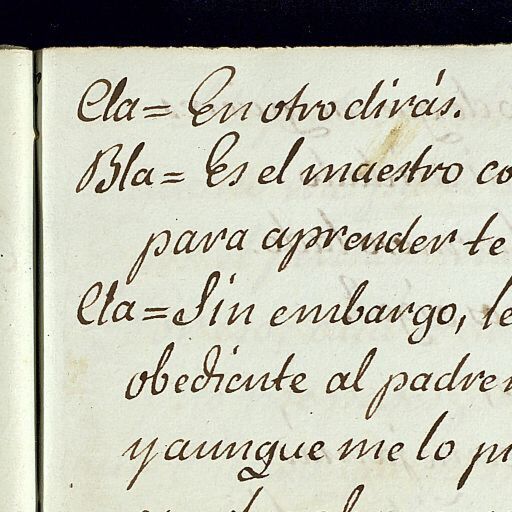 Cla= En otro dirás.
Bla= Es el maestro co
para aprender te
Cla= Sin embargo, le
obediente al padre
y aunque me lo p